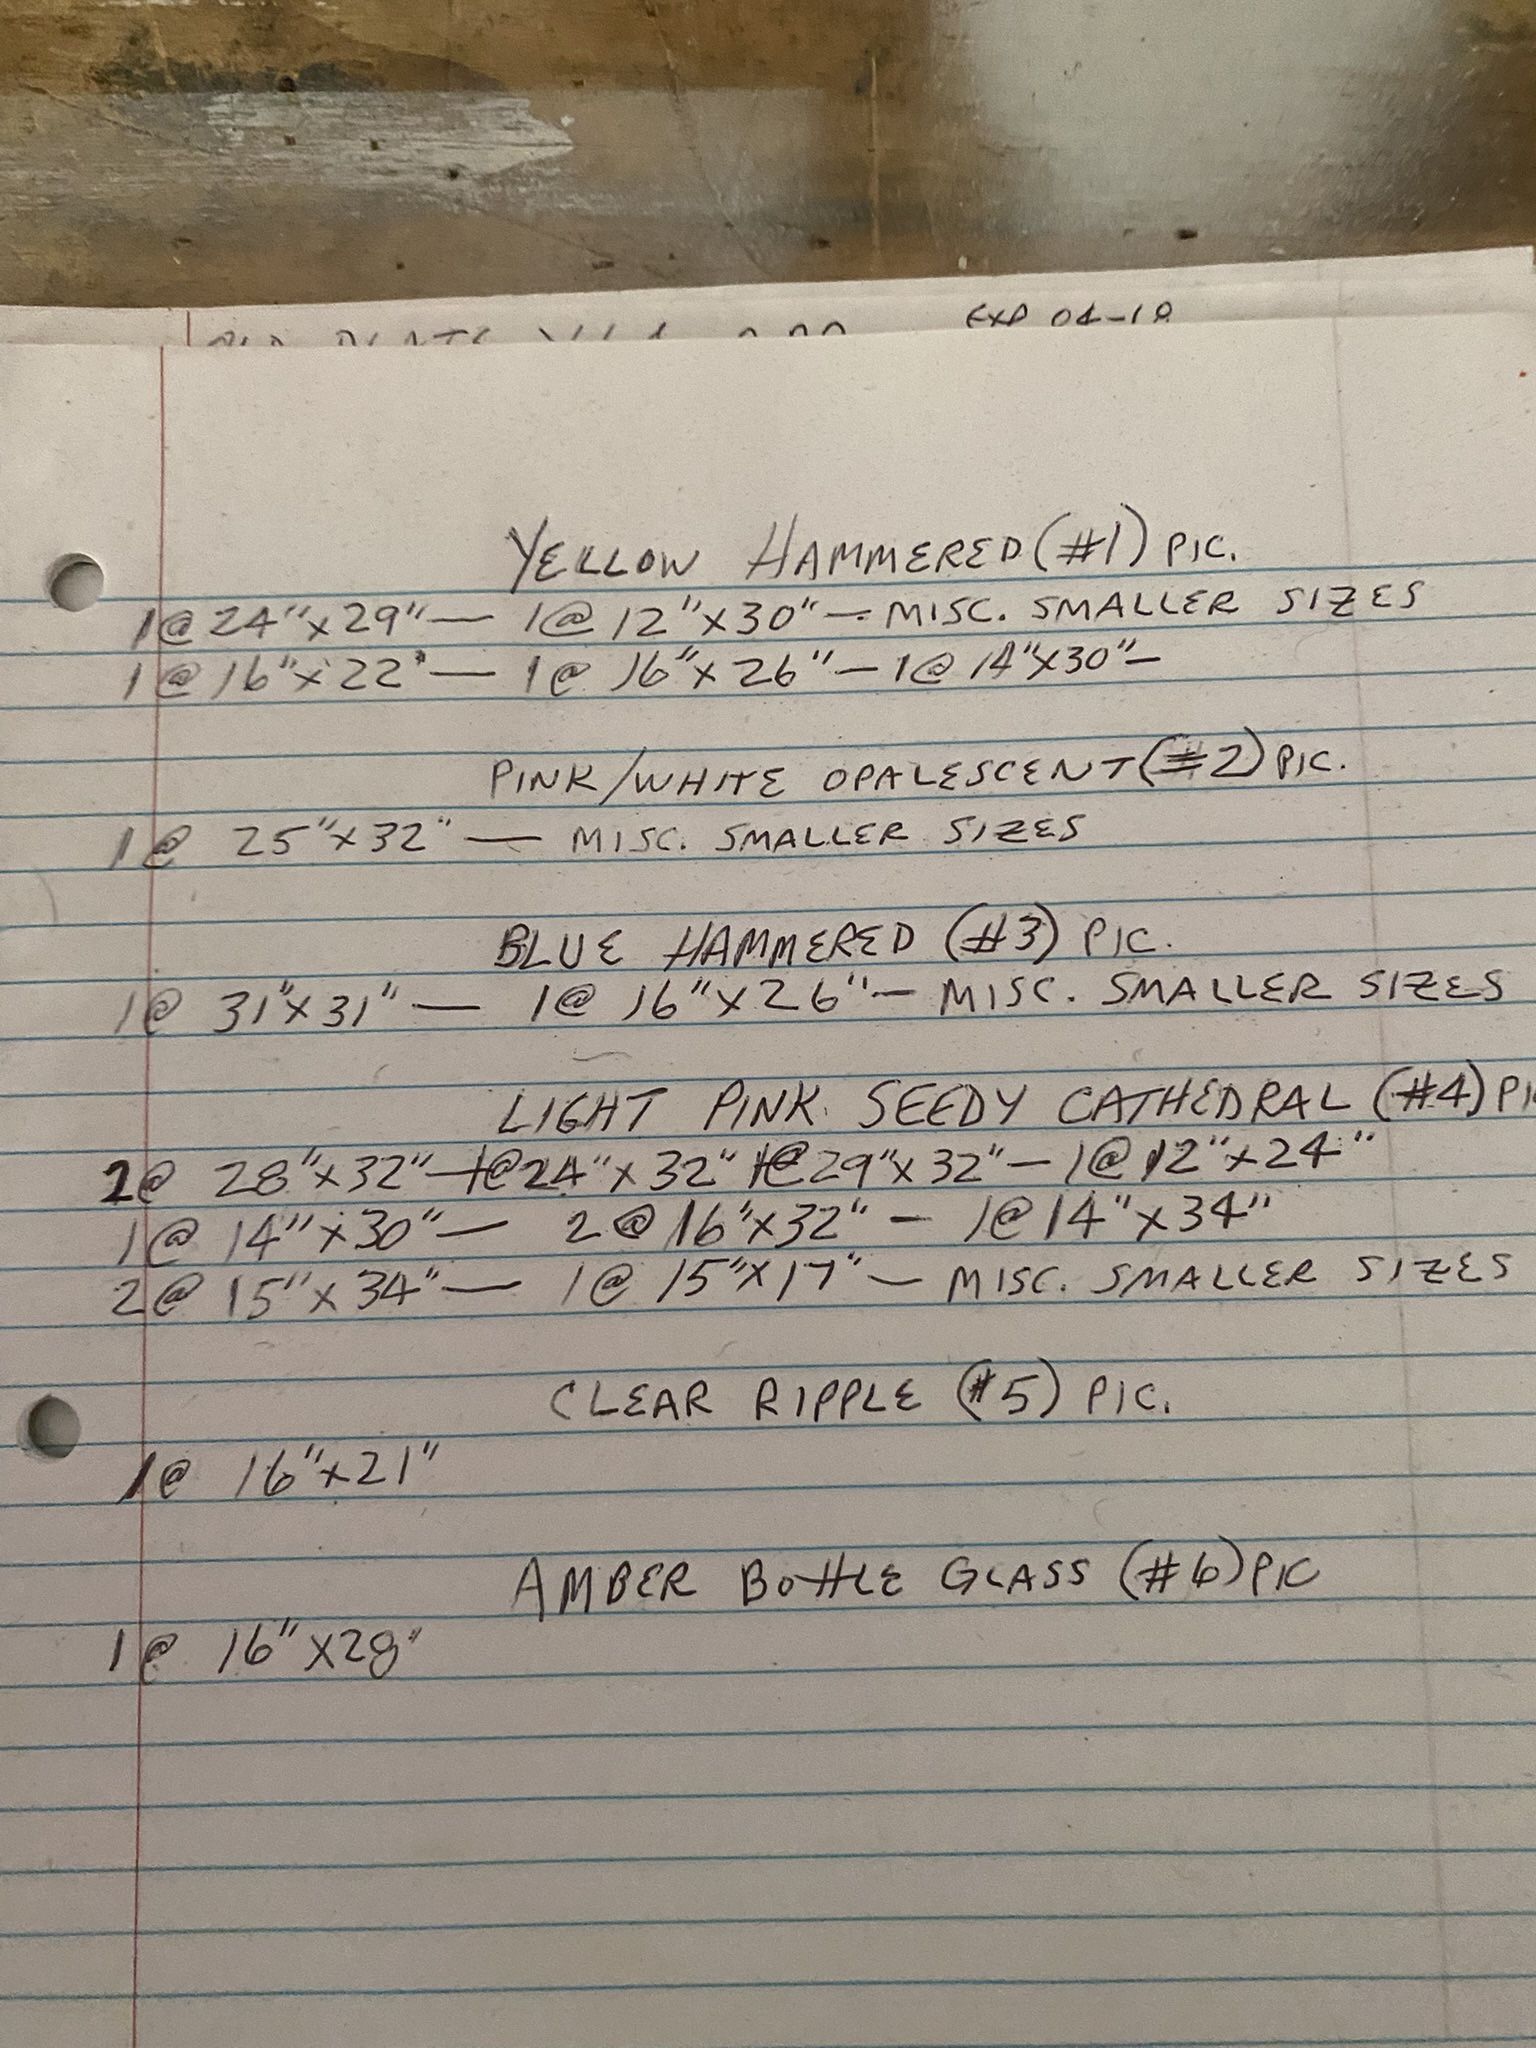 EXP 04-18
YELLOW HAMMERED (#1) PIC.
1@ 24"x29" — 1@ 12"x30" — MISC. SMALLER SIZES
1@ 16"x22" — 1@ 16"x26" — 1@ 14"x30" —
PINK/WHITE OPALESCENT (#2) PIC.
1@ 25"x32" — MISC. SMALLER SIZES
BLUE HAMMERED (#3) PIC.
1@ 31"x31" — 1@ 16"x26" — MISC. SMALLER SIZES
LIGHT PINK SEEDY CATHEDRAL (#4)
2@ 28"x32" — 1@ 24"x32" 1@ 29"x32" — 1@ 12"x24"
1@ 14"x30" — 2@ 16"x32" — 1@ 14"x34"
2@ 15"x34" — 1@ 15"x17" — MISC. SMALLER SIZES
CLEAR RIPPLE (#5) PIC.
1@ 16"x21"
AMBER BOTTLE GLASS (#6) PIC
1@ 16"x28"